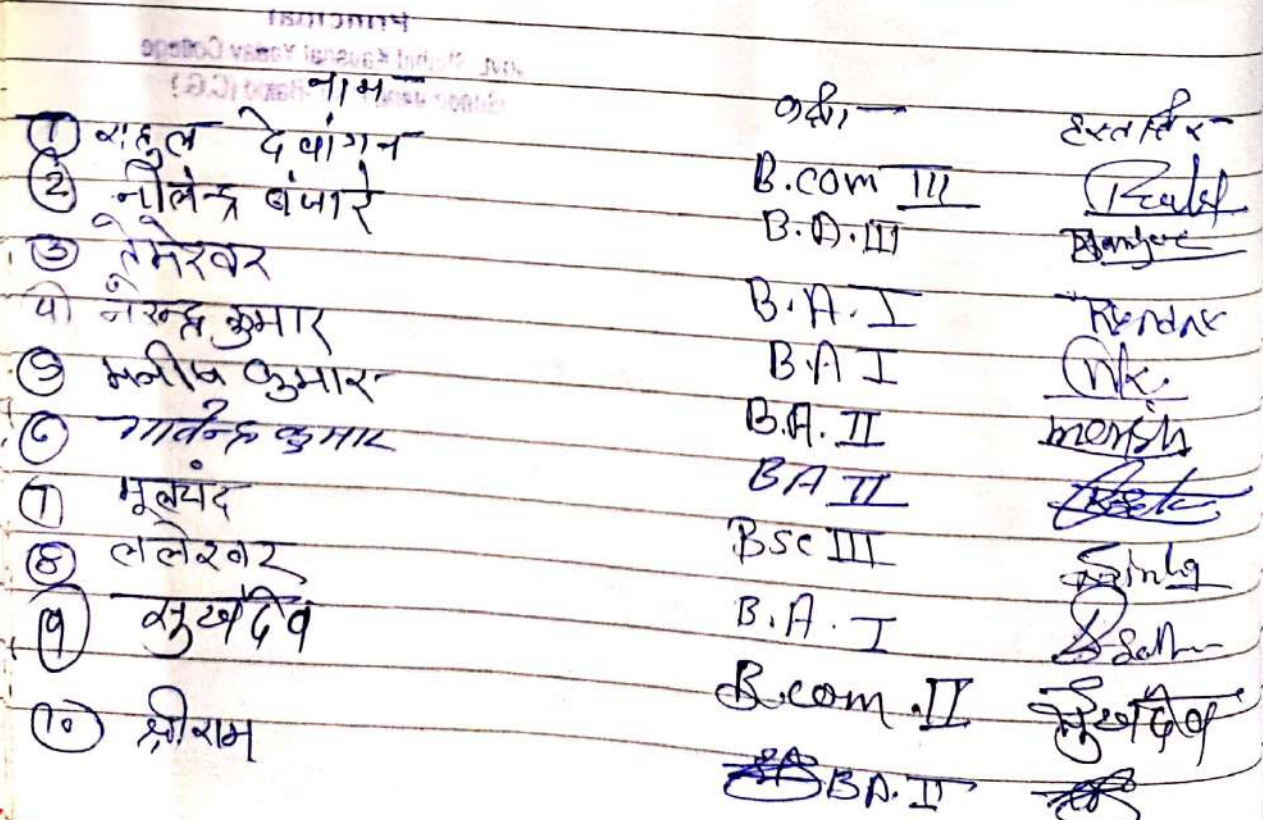 नाम कक्षा हस्ताक्षर
① राहुल देवांगन B.com III Rahul
② नीलेन्द्र बंजारे B.A.III Banjare
③ तेमेश्वर B.A. I
४) नरेन्द्र कुमार B.A I NK.
⑤ मनीष कुमार B.A. II manish
⑥ कुमार BA II
⑦ मूलचंद Bsc III Sinha
⑧ ललेश्वर B.A. I
⑨ सुखदेव B.com. II सुखदेव
⑩ श्रीराम BA. II